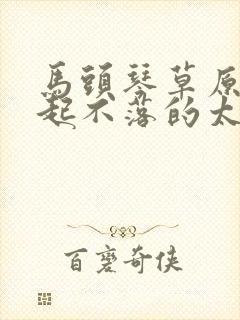 馬頭琴草原
起不落的太
百裏奇俠